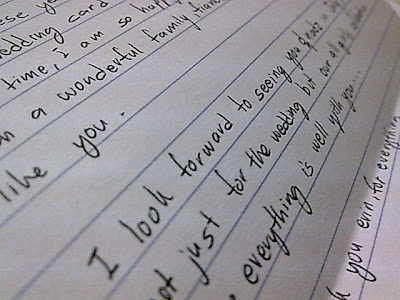 wedding card
time, I am so
a wonderful family
like you.
I look forward to seeing you & in
just for the wedding but our all girls
everything is well with you...
you for everything